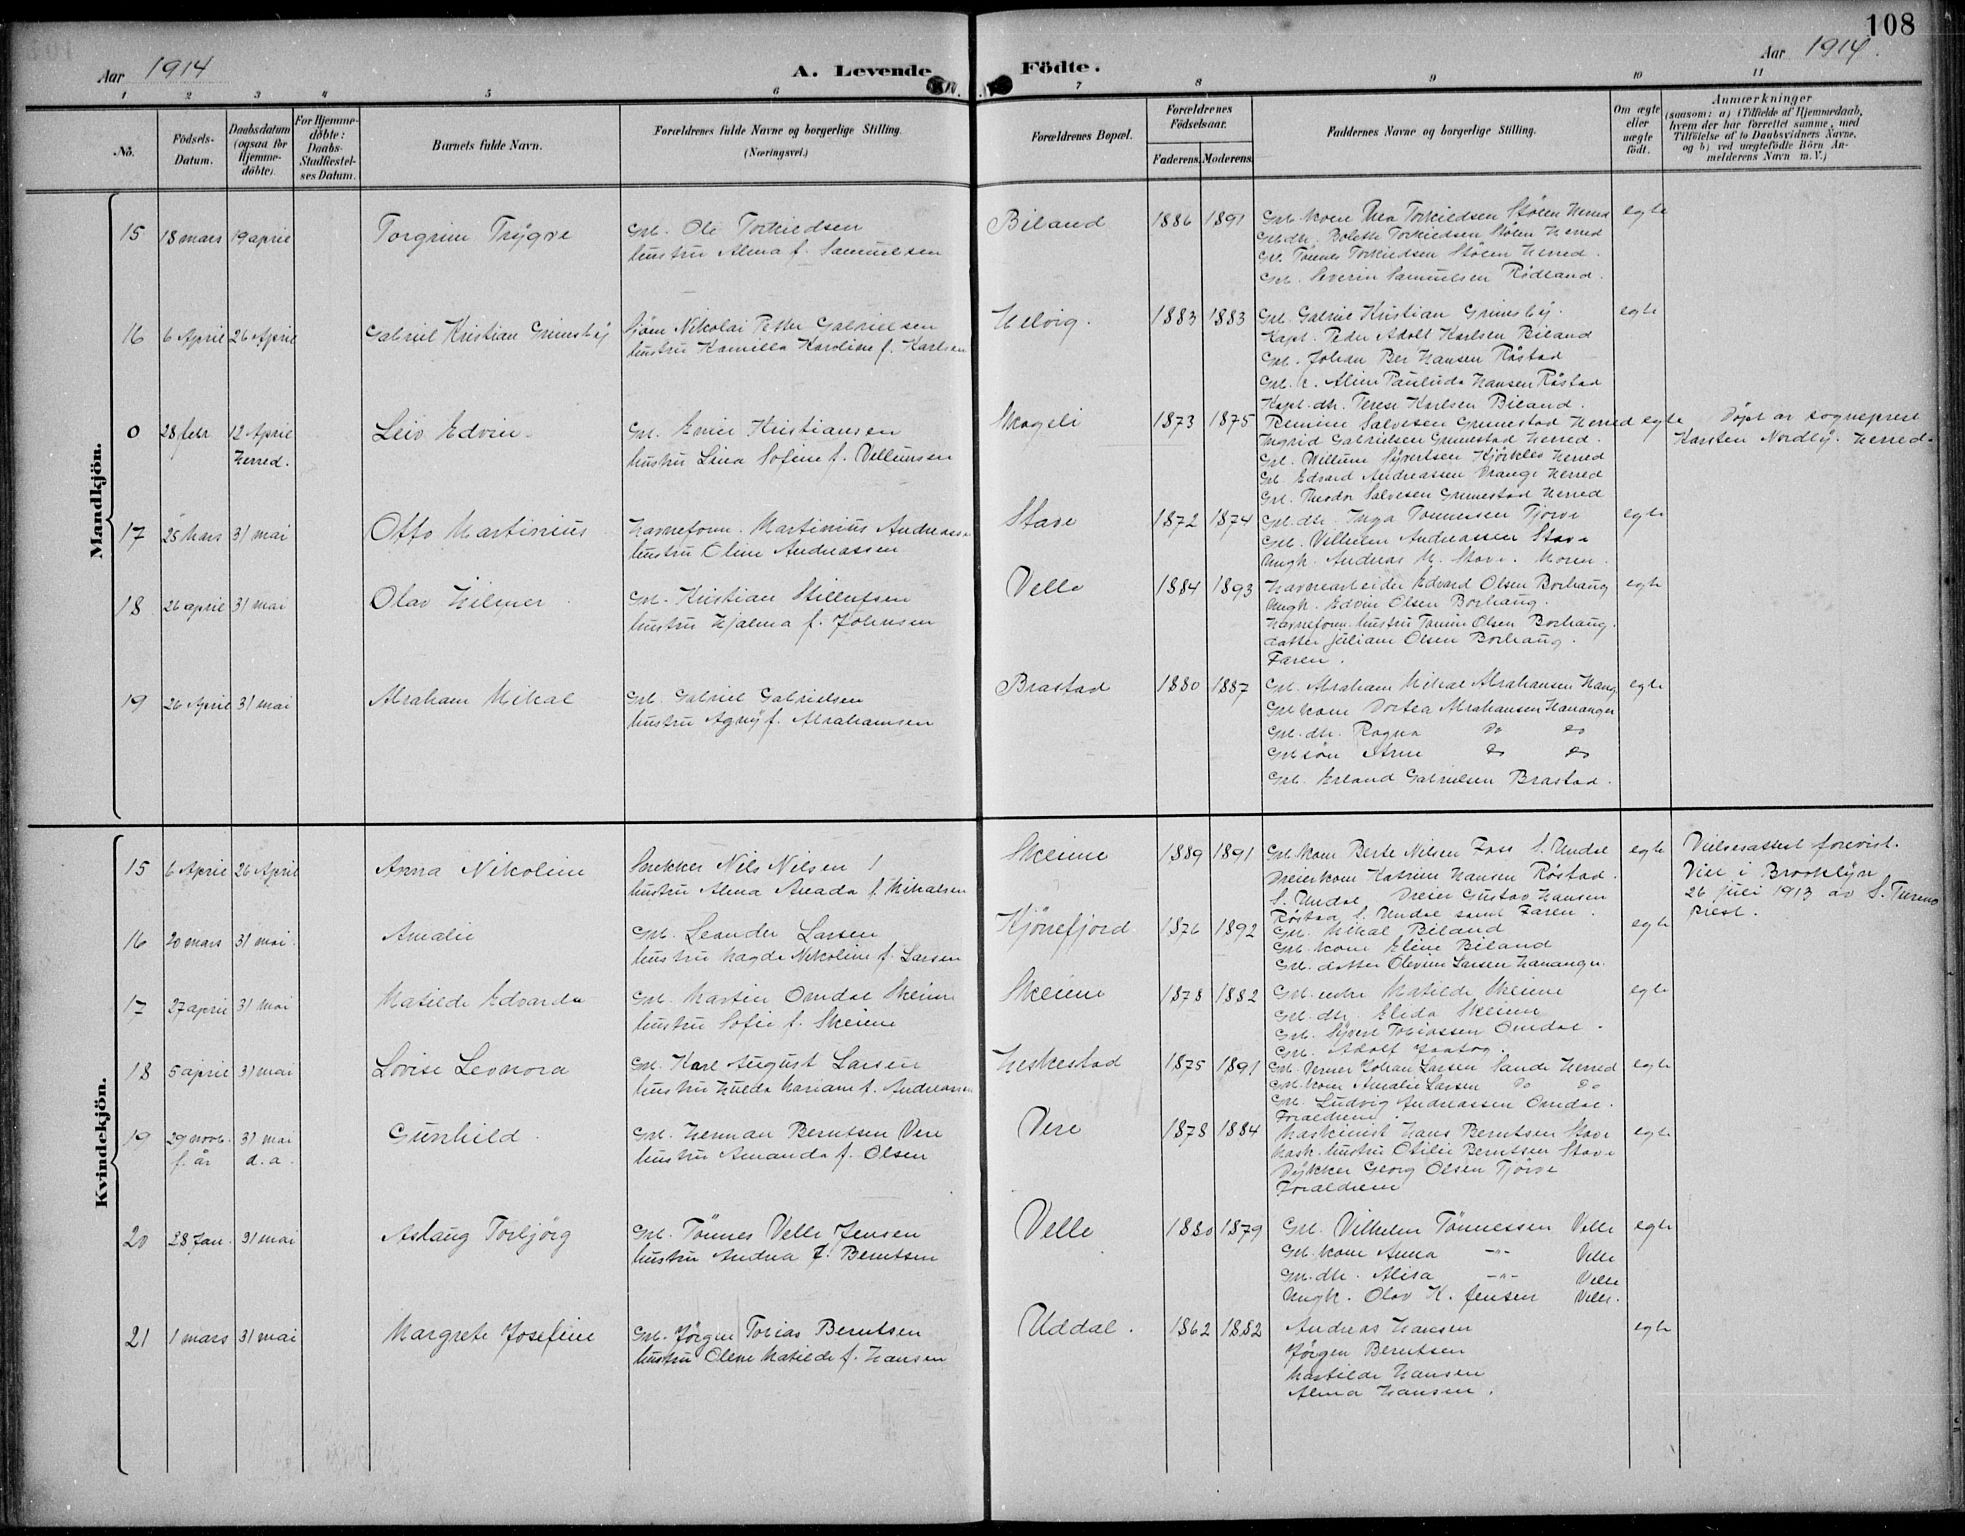 108
Aar 1914
A. Levende Födte.
Aar 1914.
1 2 3 4 5 6 7 8 9 10 11
No.
Födsels-Datum.
Daabsdatum (ogsaa for Hjemme-döbte).
For Hjemme-döbte: Daabs-Stadfæstel-ses Datum.
Barnets fulde Navn.
Forældrenes fulde Navne og borgerlige Stilling.
(Næringsvei.)
Forældrenes Bopæl.
Forældrenes Födselsaar.
Faderens. Moderens.
Faddernes Navne og borgerlige Stilling.
Om ægte eller uægte födt.
Anmærkninger
(saasom: a) i Tilfælde af Hjemmedaab,
hvem der har forrettet samme, med
Tilföielse af to Daabsvidners Navne,
og b) ved uægtefödte Börn An-
melderens Navn m. V.)
Mandkjön.
15 18 mars 19 april Torgrim Trygve
Gbl. Ole Torkildsen
hustru Alma f. Samuelsen
Biland 1886 1891
Gbl. kone Thea Torkildsen Stölen Herred
Gbl. dtr. Bolette Torkildsen Stölen Herred
Gbl. Tönnes Torkildsen Stölen Herred.
Gbl. Severin Samuelsen Rödland.
egte
16 6 April 26 April Gabriel Kristian Grimsby
Sjöm Nikolai Petter Gabrielsen
hustru Kamilla Karoline f. Karlsen
Helvig. 1883 1883
Gbl. Gabriel Kristian Grimsby.
Kapt. Peder Adolf Karlsen Biland
Gbl. Johan Ber Hansen Råstad
Gbl. k. Aline Paulida Hansen Råstad
Kapt. dtr. Terese Karlsen Biland.
egte
0 28 febr 12 April Herred. Leiv Edvin
Gbl. Emil Kristiansen
hustru Lina Sofine f. Vellumsen
Skogeli 1873 1875
Salvesen Grimestad Herred
Ingrid Gabrielsen Grimestad Herred.
Gbl. Willum Syvertsen Herred
Gbl. Edvard Andreassen Vrange Herred
Gbl. Theodor Salvesen Grimestad Herred
egte
Döpt av sogneprest
Karsten Nordby. Herred.
17 25 Mars 31 mai Otto Martinius
Havneform. Martinius Andreassen
hustru Oline Andreassen
Stave 1872 1874
Gbl. dtr. Inga Tönnessen Tjörve
Gbl. Vilhelm Andreassen Stave
Ungk. Andreas M. Stave. Moren.
egte
18 26 april 31 mai Olav Hilmer
Gbl. Kristian Stillufsen
hustru Hjalma f. Johnsen
Velle 1884 1893
Havnearbeider Edvard Olsen Borhaug
Ungk. Edvin Olsen Borhaug.
Havneform. hustru Tomine Olsen Borhaug.
datter Juliane Olsen Borhaug.
Faren.
egte
19 26 April 31 mai Abraham Mikal
Gbl. Gabriel Gabrielsen
hustru Agny f. Abrahamsen
Brastad 1880 1887
Gbl. Abraham Mikal Abrahamsen Hanang
Gbl kone Dortea Abrahamsen Hananger
Gbl. dtr. Ragna Do Do
Gbl sön Arne Do Do
Gbl. Erland Gabrielsen Brastad.
egte
Kvindekjön.
15 6 April 26 April Anna Nikoline
Snekker Nils Nilsen
hustru Alma Amada f. Mikalsen
Skeime 1889 1891
Gbl. kone Berte Nilsen Foss S. Undal
Dreier kone Katrine Hansen Röstad.
S. Undal Dreier Gustav Hansen
Röstad S. Undal samt Faren.
egte
Vielsesattest forevist.
Viet i Brooklyn
26 juli 1913 av S.
prest.
16 20 mars 31 mai. Amalie
Gbl. Leander Larsen
hustru Magda Nikoline f. Larsen
Kjörrefjord 1876 1892
Gbl. Mikal Biland
Gbl. kone Eline Biland
Gbl. datter Olevine Larsen Hananger.
egte
17 27 april 31 mai Matilde Edvarda
Gbl. Martin Omdal Skeime
hustru Sofie f. Skeime
Skeime 1878 1882
Gbl. enke Matilde Skeime
Gbl. dtr. Elida Skeime
Gbl. Syvert Tobiassen Omdal.
Gbl. Adolf
egte
18 5 april 31 mai Lovise Leonora
Gbl. Karl August Larsen
hustru Hulda Mariane f. Andreassen
Heskestad 1875 1891
Gbl. Verner Johan Larsen Sande Herred
Gbl. kone Amalie Larsen Do Do
Gbl. Ludvig Andreassen Omdal.
Foraldrene.
egte
19 29 novb. f. år 31 mai d. a. Gunhild
Gbl. Herman Berntsen Vere
hustru Amanda f. Olsen
Vere 1878 1884
Maskinist Hans Berntsen Stave
Mask. hustru Otilie Berntsen Stave
Dykker Georg Olsen Tjörve
Foraldrene
egte
20 28 Jan. 31 mai Aslaug Torbjörg
Gbl. Tönnes Velle Jensen
hustru Andrea f. Berntsen
Velle 1880 1879
Gbl. Vilhelm Tönnessen Velle
Gbl. kone Anna -"- Velle
Gbl. dtr. Alisa -"- Velle
Ungk. Olav K. Jensen Velle.
egte
21 1 mars 31 mai Margrete Josefine
Gbl. Jörgen Tobias Berntsen
hustru Oline Matilde f. Hansen
Uddal. 1862 1882
Andreas Hansen
Jörgen Berntsen
Martilde Hansen
Alma Hansen.
egte